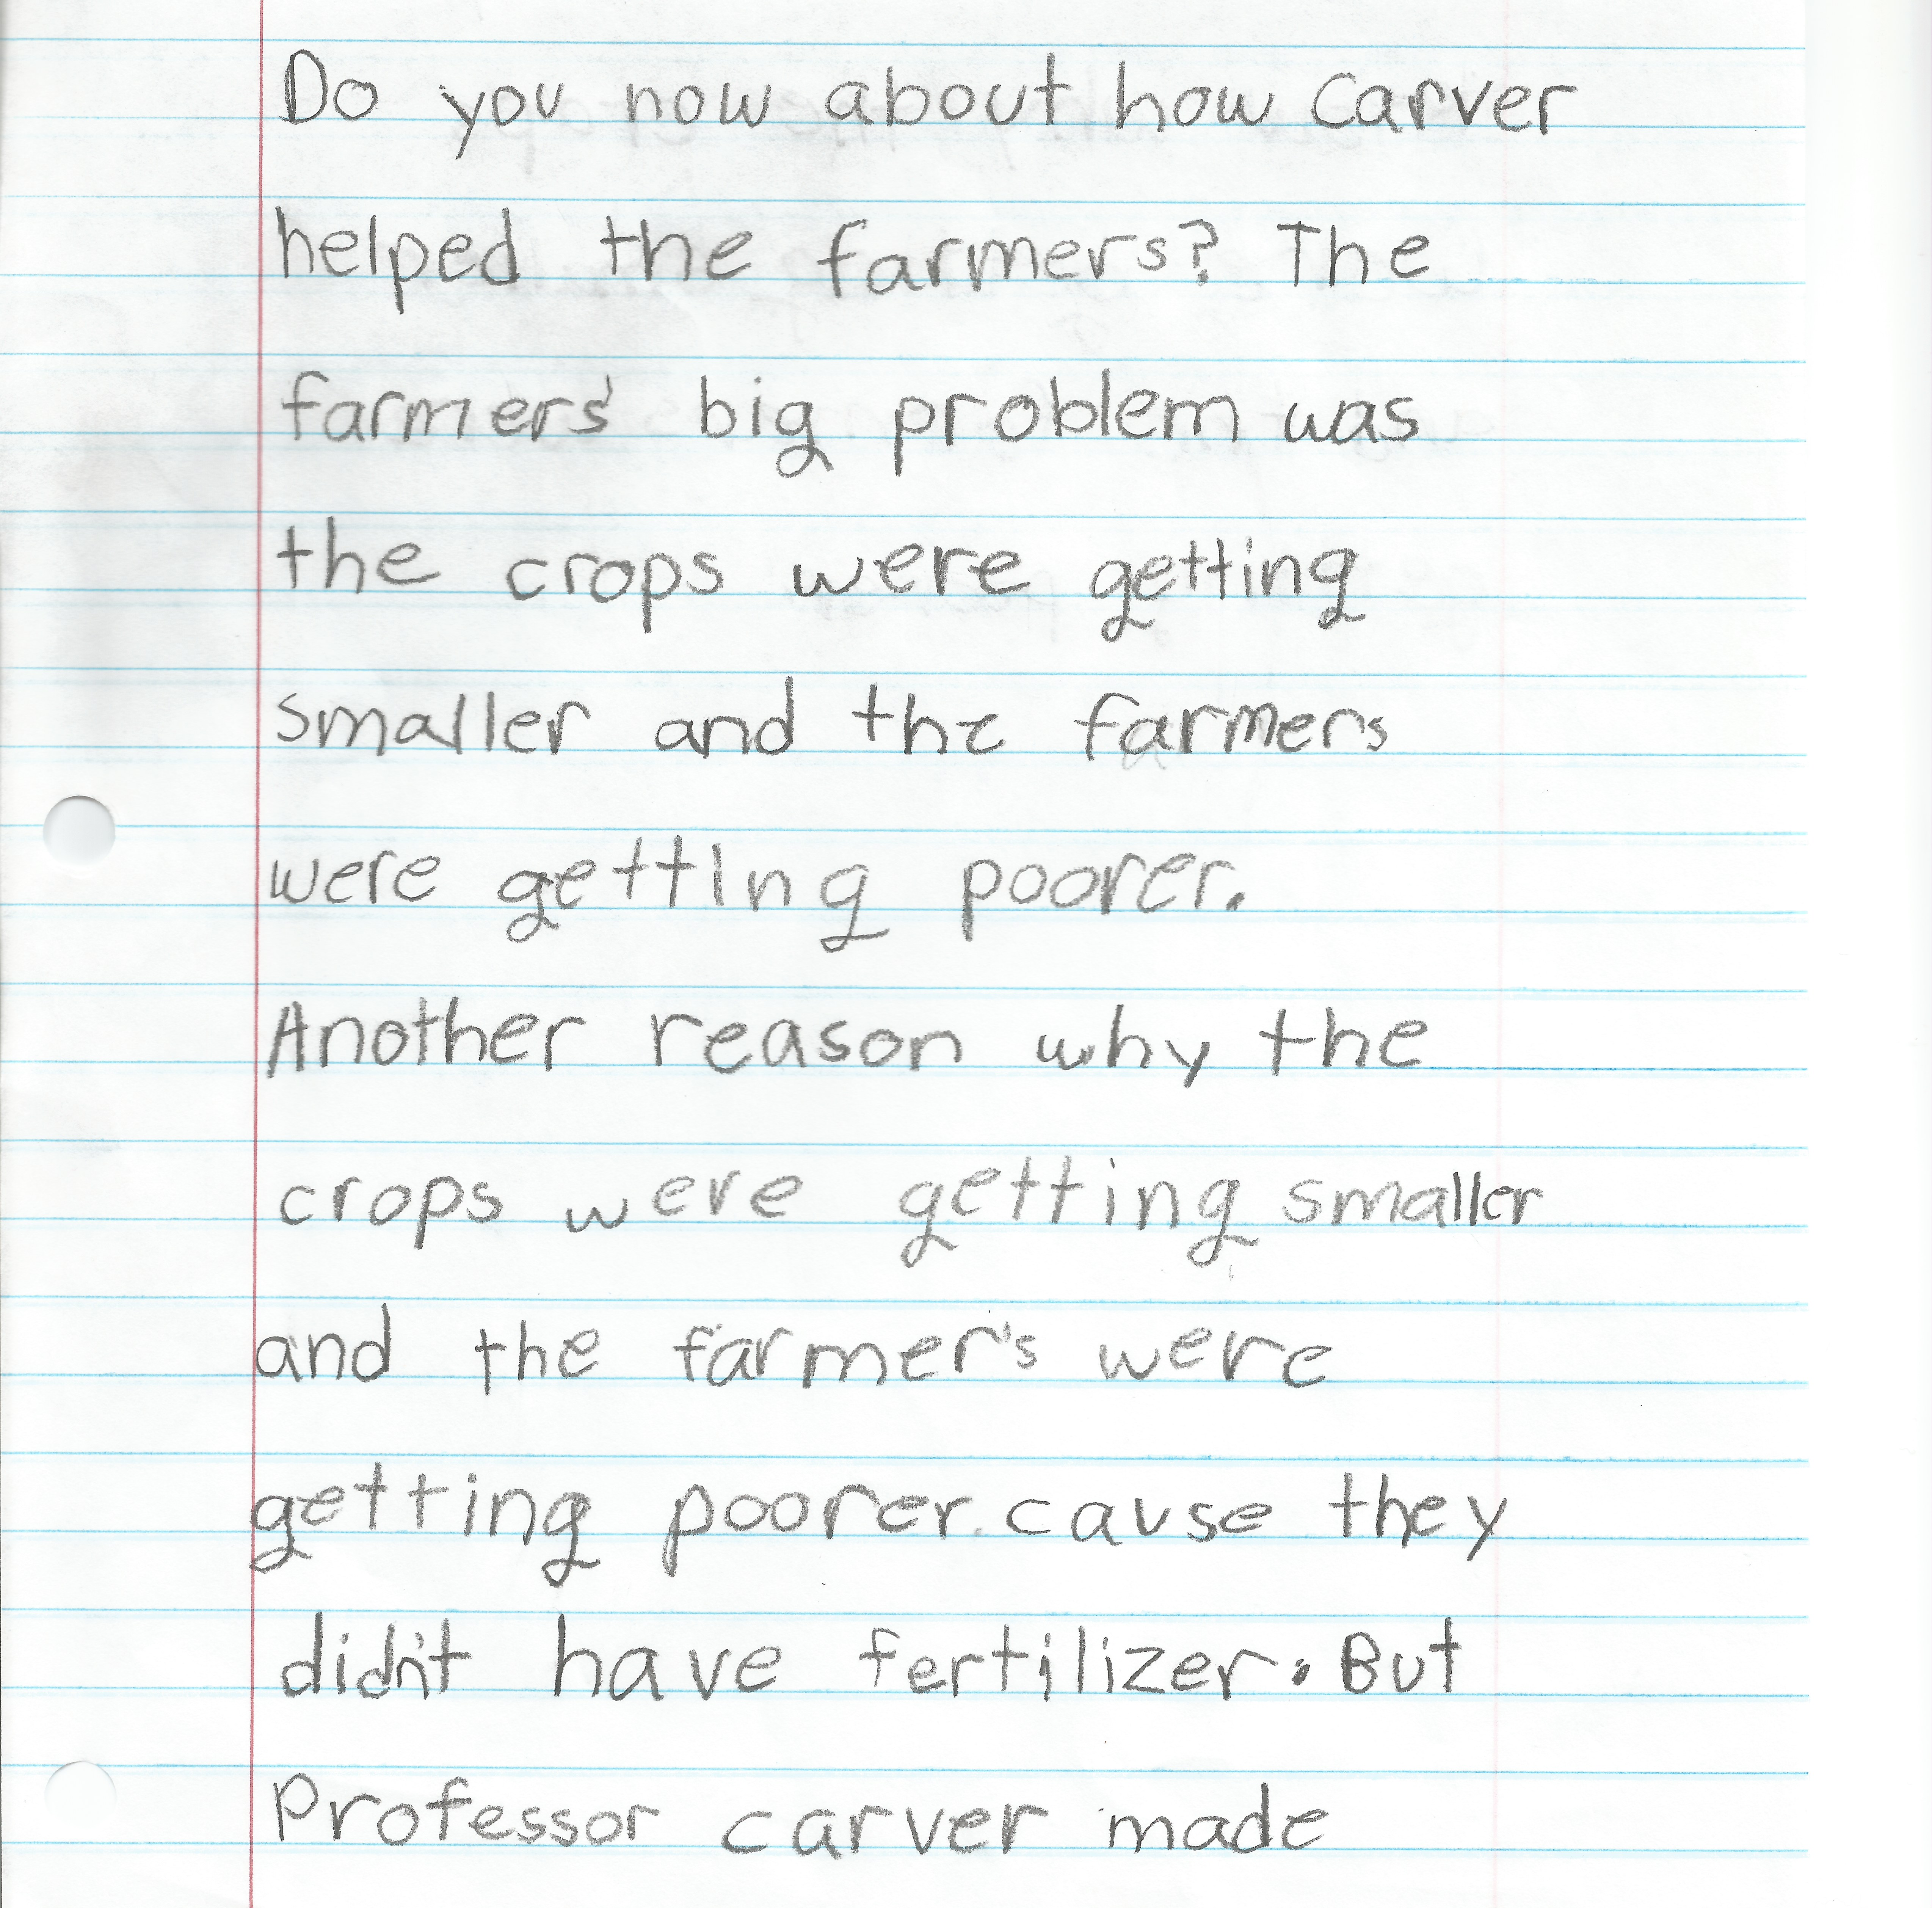 Do you now about how Carver
helped the farmers? The
farmers' big problem was
the crops were getting
smaller and the farmers
were getting poorer.
Another reason why the
crops were getting smaller
and the farmer's were
getting poorer. cause they
didn't have fertilizer. But
Professor carver made